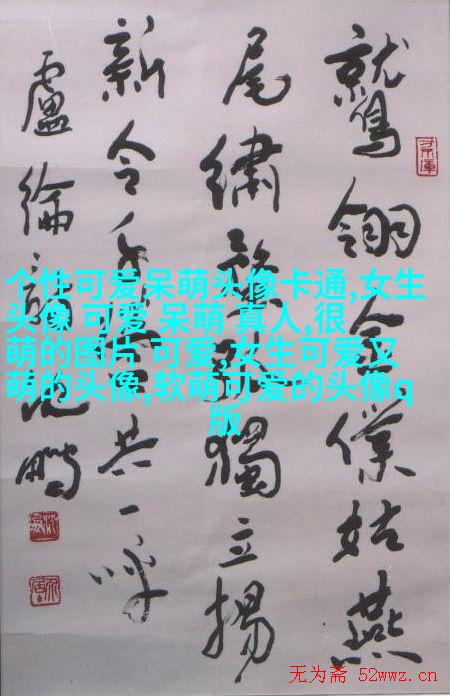 鷲翎金僕姑燕
尾繡獨立揚
新令千共一呼
盧綸詩沈鵬
个性可爱呆萌头像卡通,女生
头像 可爱 呆萌 真人,很
萌的图片 可爱,女生可爱又
萌的头像,软萌可爱的头像q
版
无为斋 52wwz.cn